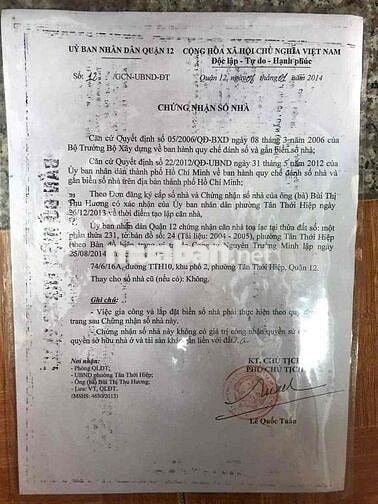 ỦY BAN NHÂN DÂN QUẬN 12 CỘNG HÒA XÃ HỘI CHỦ NGHĨA VIỆT NAM
Độc lập - Tự do - Hạnh phúc
Số: 12 /GCN-UBND-ĐT Quận 12, ngày tháng năm 2014
CHỨNG NHẬN SỐ NHÀ
Căn cứ Quyết định số 05/2006/QĐ-BXD ngày 08 tháng 3 năm 2006 của
Bộ Trưởng Bộ Xây dựng về ban hành quy chế đánh số và gắn biển số nhà;
Căn cứ Quyết định số 22/2012/QĐ-UBND ngày 31 tháng 5 năm 2012 của
Ủy ban nhân dân thành phố Hồ Chí Minh về ban hành quy chế đánh số nhà và
gắn biển số nhà trên địa bàn thành phố Hồ Chí Minh;
Theo Đơn đăng ký cấp số nhà và Chứng nhận số nhà của ông (bà) Bùi Thị
Thu Hương có xác nhận của Ủy ban nhân dân phường Tân Thới Hiệp ngày
26/12/2013 về thời điểm tạo lập căn nhà,
Ủy ban nhân dân Quận 12 chứng nhận căn nhà tọa lạc tại thửa đất số: một
phần thửa 231, tờ bản đồ số: 24 (Tài liệu: 2004 - 2005), phường Tân Thới Hiệp
(theo Bản đồ hiện trạng vị trí Công ty Nguyên Trường Minh lập ngày
25/08/2014
muaban.net
74/6/16A, đường TTH10, khu phố 2, phường Tân Thới Hiệp, Quận 12.
Thay cho số nhà cũ (nếu có): Không.
Ghi chú:
- Việc gia công và lắp đặt biển số nhà phải thực hiện theo quy
trang sau Chứng nhận số nhà này.
- Chứng nhận số nhà này không có giá trị công nhận quyền sử
quyền sở hữu nhà ở và tài sản khác gắn liền với đất./.
Nơi nhận:
- Phòng QLĐT;
- UBND phường Tân Thới Hiệp;
- Ông (bà) Bùi Thị Thu Hương;
- Lưu: VT, QLĐT.
(MSHS: 4630/2013)
KT. CHỦ TỊCH
PHÓ CHỦ TỊCH
Lê Quốc Tuấn